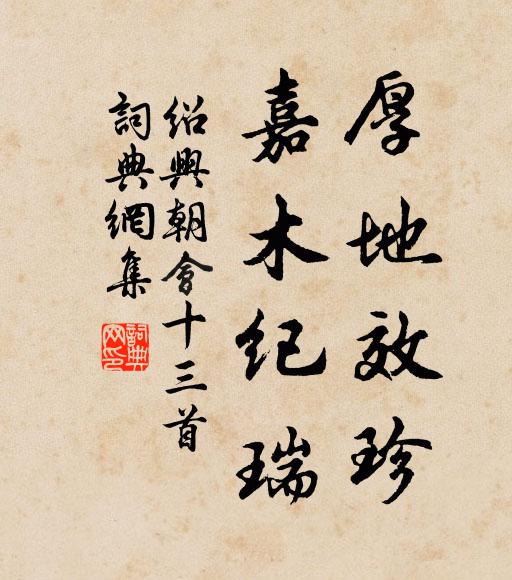 厚地效珍
嘉木纪瑞
绍興朝會十三首
詞典網集
詞典網印